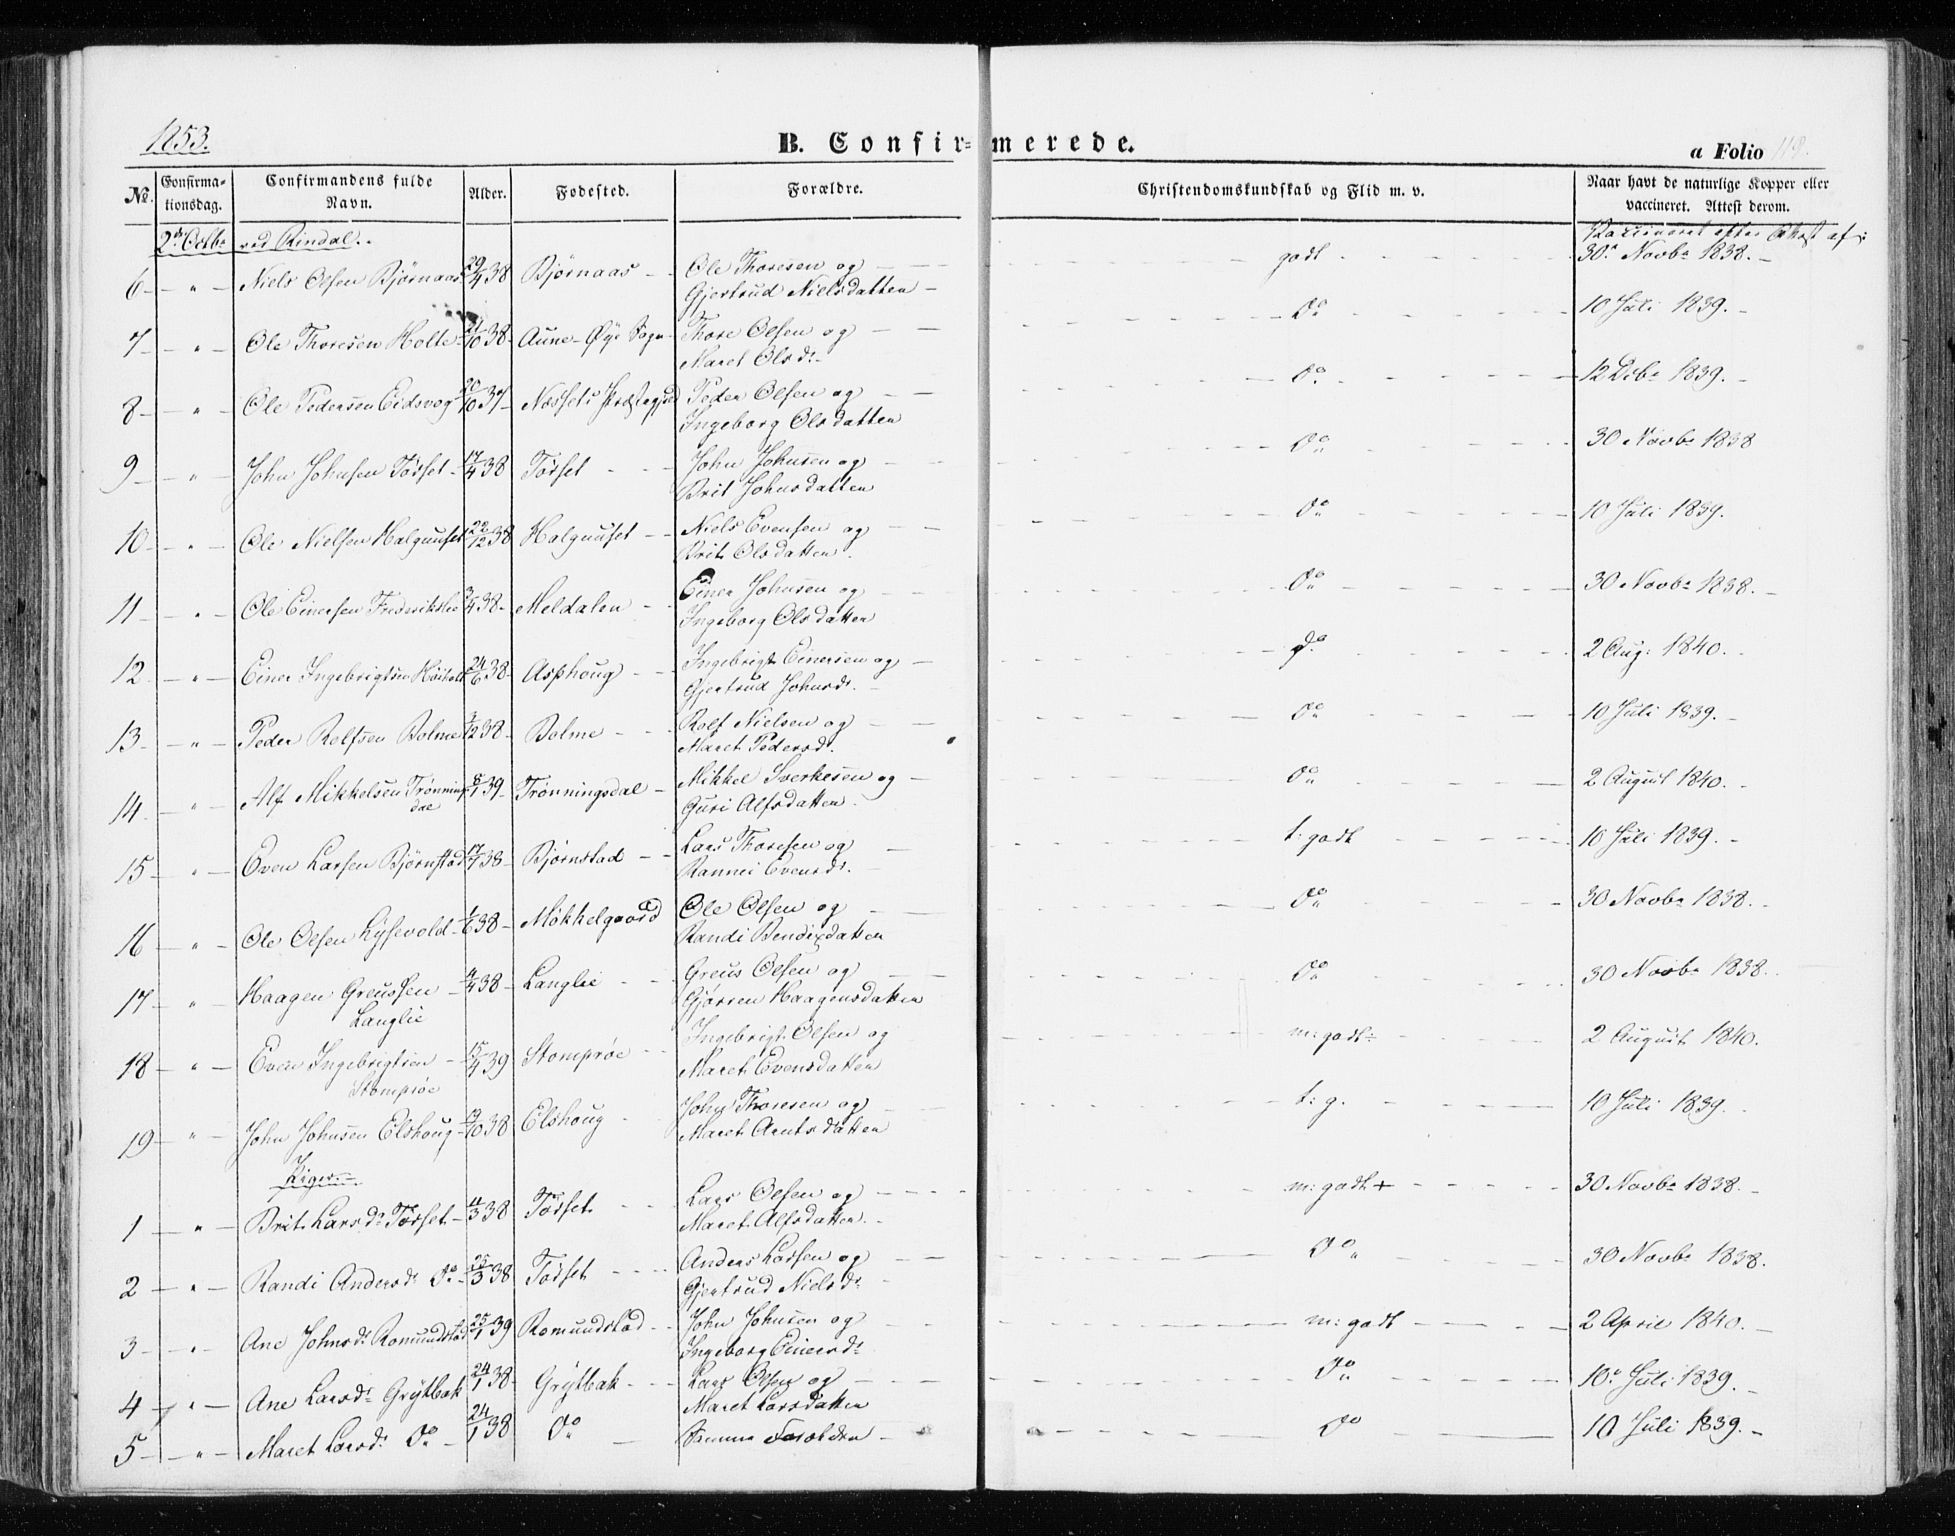 1853.
B. Confir= merede.
a Folio 118.
No.
Confirma= tionsdag.
Confirmandens fulde Navn.
Alder.
Fødested.
Forældre.
Christendomskundskab og Flid m. v.
Naar havt de naturlige Kopper eller vaccineret. Attest derom.
2den Octbr ved Rindal.
Vaccineret efter Attest af:
6 " Niels Olsen Bjørnaas 29/4 38 Bjørnaas Ole Thoresen og godt 30te Novbr 1838.
Gjertrud Nielsdatter
7 " Ole Thoresen Holte 21/10 38 Aune Øye Sogn Thore Olsen og Do 10 Juli 1839.
Maret Olsdr
8 " Ole Pedersen Eidsvog 20/10 37 Næssets Præstegjeld Peder Olsen og Do 12 Dcbr 1839.
Ingeborg Olsdatter
9 " John Johnsen Torset 17/4 38 Torset John Johnsen og Do 30 Novbr 1838
Brit Johnsdatter
10 " Ole Nielsen Halgunset 22/12 38 Halgunset Niels Evensen og Do 10 Juli 1839.
Brit Olsdatter.
11 " Ole Einersen Frederikslie 3/4 38 Meldalen Einer Johnsen og Do 30 Novbr 1838.
Ingeborg Olsdatter
12 " Einer Ingebrigtsen 24/6 38 Asphoug Ingebrigt Einersen og Do 2 Aug: 1840.
Gjertrud Johnsdr.
13 " Peder Rolfsen Bolme 3/12 38 Bolme Rolf Nielsen og Do 10 Juli 1839.
Maret Pedersd.
14 " Alf Mikkelsen Trønningsdal 8/1 39 Trønningsdal Mikkel Sverkesen og Do 2 August 1840.
Guri Alfsdatter.
15 " Even Larsen Bjørnstad 17/7 38 Bjørnstad Lars Thoresen og t: godt 10 Juli 1839.
Rannei Evensdr.
16 " Ole Olsen Lysevold 1/6 38 Møkkelgaard Ole Olsen og Do 30 Novbr 1838.
Randi Bendixdatter
17 " Haagen Greussen 4/4 38 Langlie Greus Olsen og Do 30 Novbr 1838.
Langlie Gjørren Haagensdatter
18 " Even Ingebrigtsen 15/4 39 Stomprøe Ingebrigt Olsen og m: godt÷ 2 August 1840.
Stomprøe Maret Evensdatter
19 " John Johnsen Elshoug 19/10 38 Elshoug John Thoresen og t: g. 10 Juli 1839.
Maret Arntsdatter
Piger
1 " Brit Larsdr Torset 11/3 38 Torset Lars Olsen og m: godt + 30 Novbr 1838.
Maret Alfsdatter.
2 " Randi Andersdr Do 25/3 38 Torset Anders Larsen og Do 30 Novbr 1838.
Gjertrud Nielsdr
3 " Ane Johnsdr Romundstad 25/1 39 Romundstad John Johnsen og m: godt 2 April 1840.
Ingeborg Einersdr
4 " Ane Larsdr Grytbak 24/1 38 Grytbak Lars Olsen og Do 10de Juli 1839.
Maret Larsdatter
5 " Maret Larsdr Do 24/1 38 Do Samme Forældre Do 10 Juli 1839.